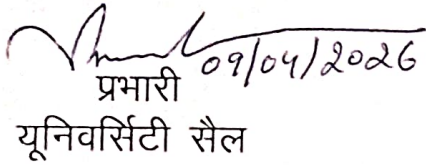 09/04/2026
प्रभारी
यूनिवर्सिटी सैल